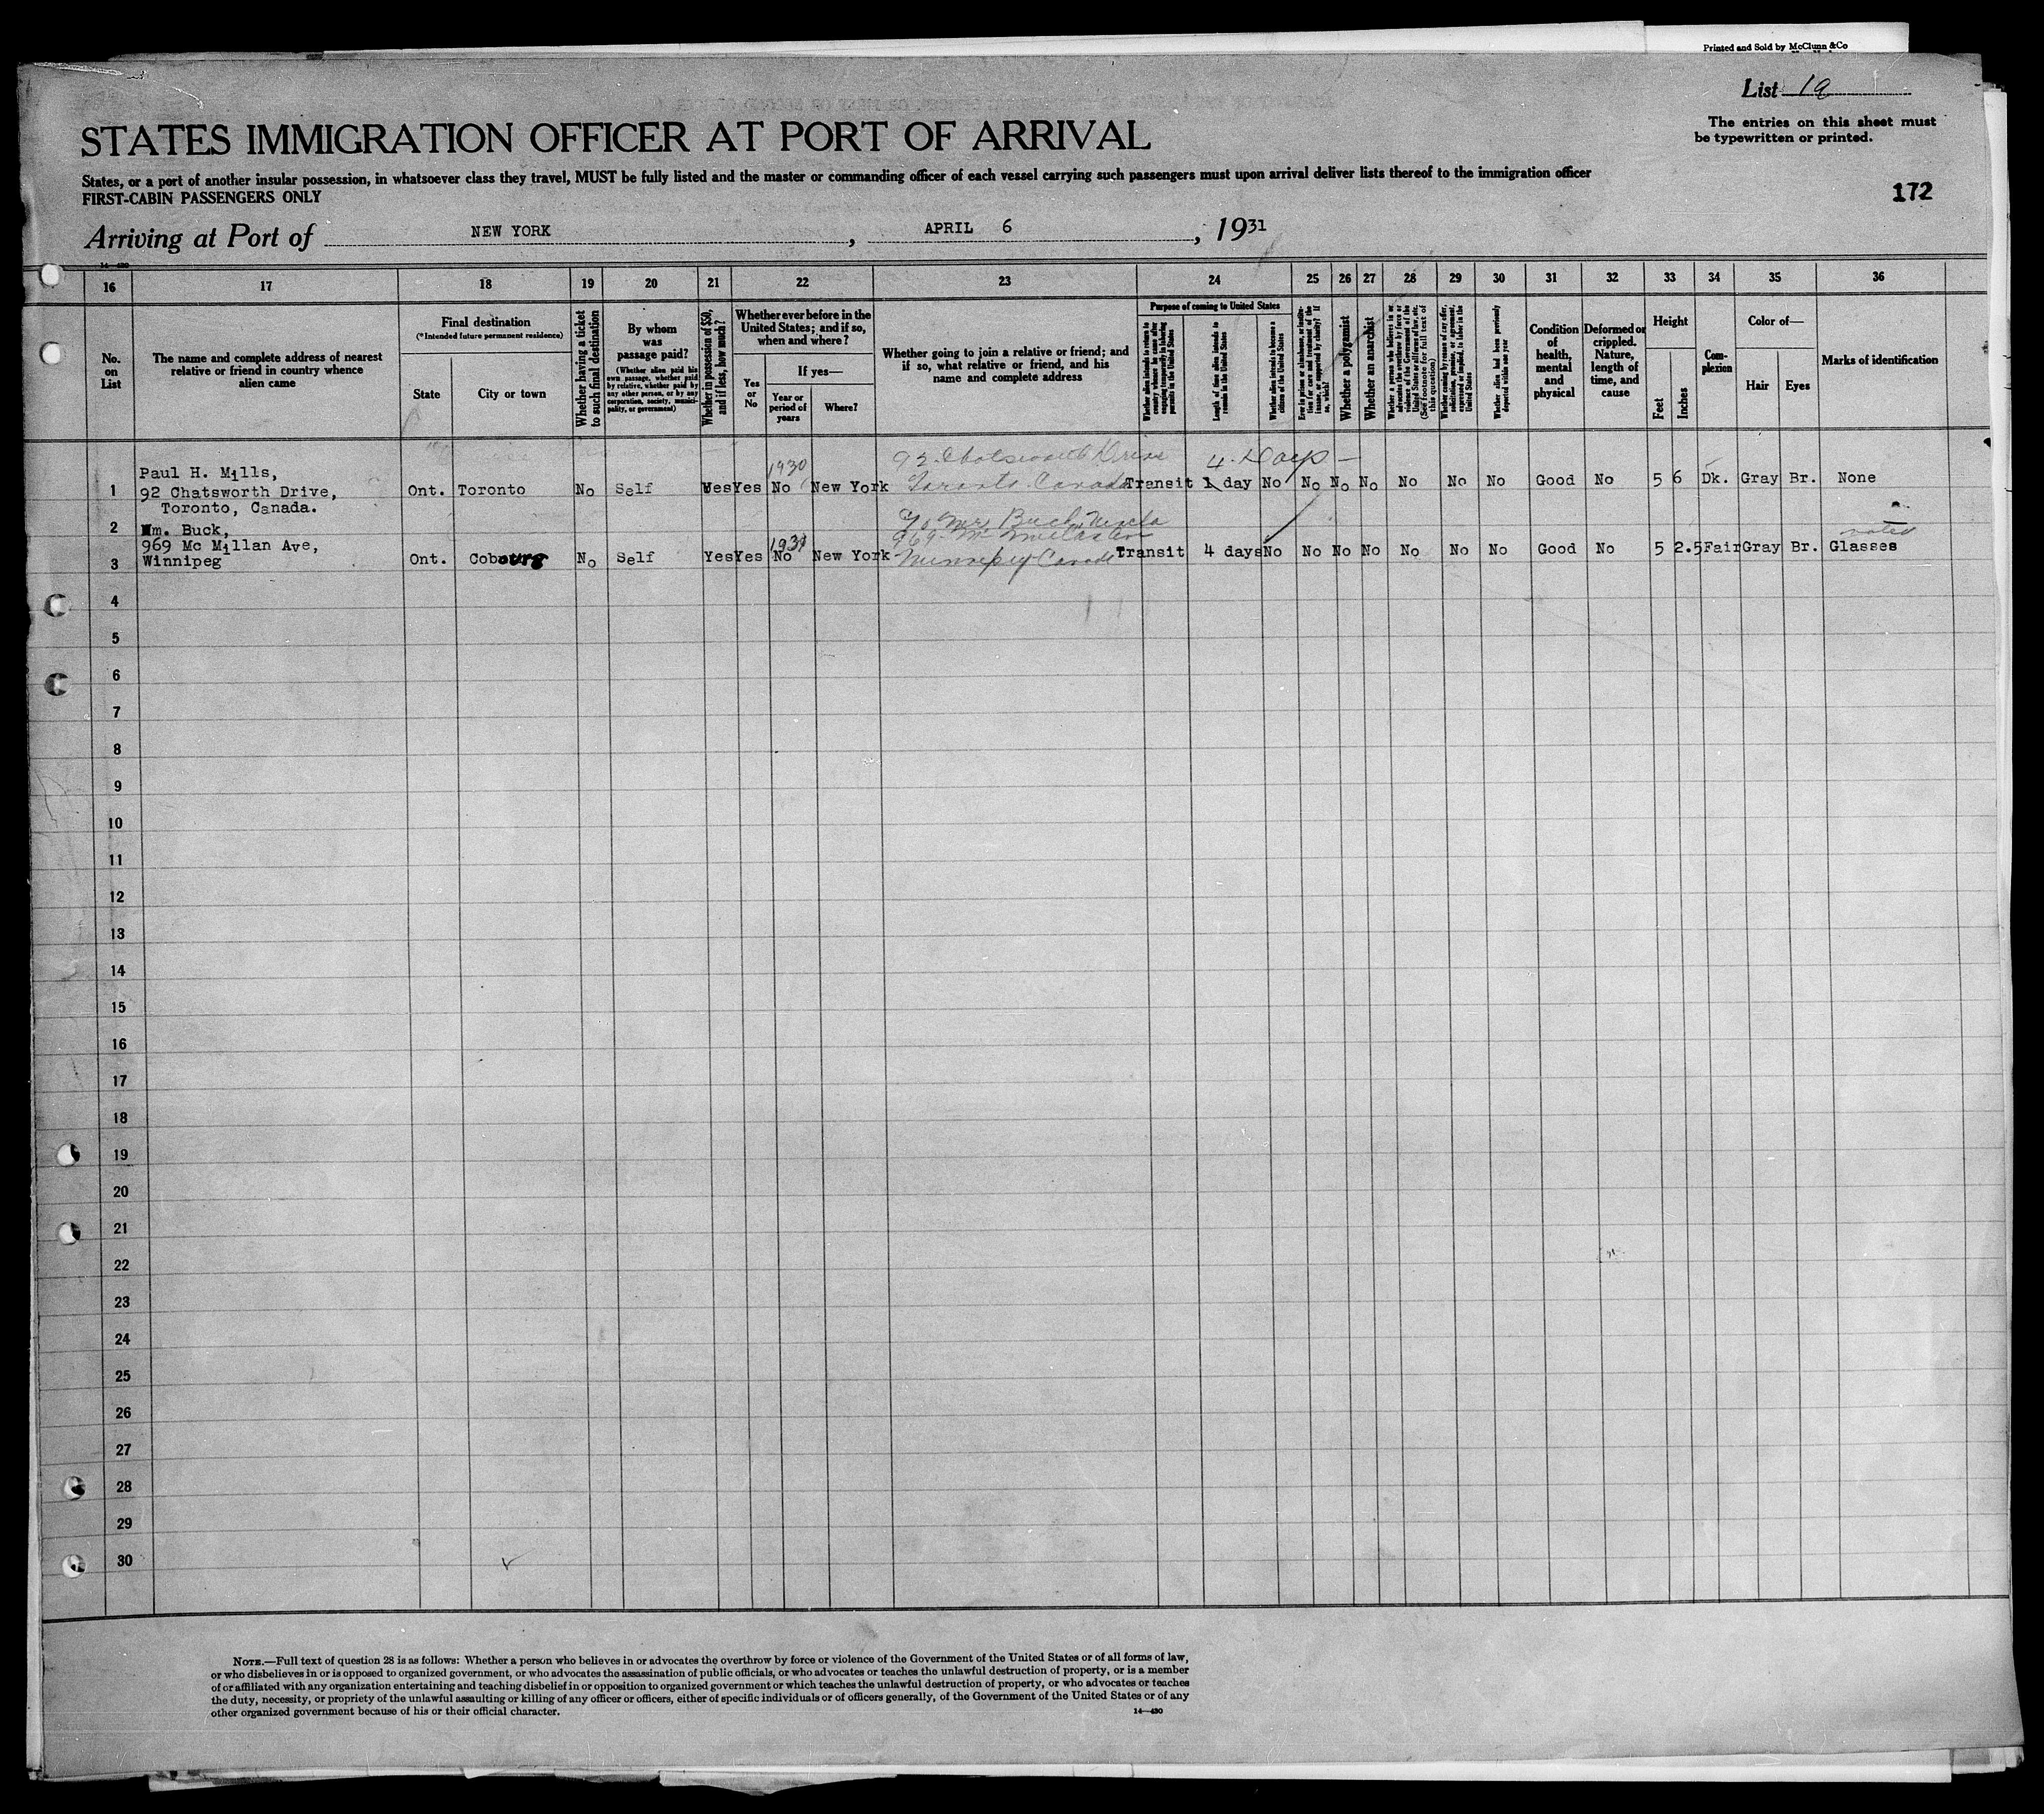 Printed and Sold by McClunn & Co
List 19
The entries on this sheet must
be typewritten or printed.
STATES IMMIGRATION OFFICER AT PORT OF ARRIVAL
States, or a port of another insular possession, in whatsoever class they travel, MUST be fully listed and the master or commanding officer of each vessel carrying such passengers must upon arrival deliver lists thereof to the immigration officer
FIRST-CABIN PASSENGERS ONLY
172
Arriving at Port of NEW YORK, APRIL 6, 1931
14—430
16 17 18 19 20 21 22 23 24 25 26 27 28 29 30 31 32 33 34 35 36
No. on List
The name and complete address of nearest relative or friend in country whence alien came
Final destination
(*Intended future permanent residence)
State
City or town
Whether having a ticket to such final destination
By whom was passage paid?
(Whether alien paid his own passage, whether paid by relative, whether paid by any other person, or by any corporation, society, municipality, or government)
Whether in possession of $50, and if less, how much?
Whether ever before in the United States; and if so, when and where?
Yes or No
If yes—
Year or period of years
Where?
Whether going to join a relative or friend; and if so, what relative or friend, and his name and complete address
Purpose of coming to United States
Whether alien intends to return to country whence he came after engaging temporarily in laboring pursuits in the United States
Length of time alien intends to remain in the United States
Whether alien intends to become a citizen of the United States
Ever in prison or almshouse, or institution for care and treatment of the insane, or supported by charity? If so, which?
Whether a polygamist
Whether an anarchist
Whether a person who believes in or advocates the overthrow by force or violence of the Government of the United States or all forms of law, etc. (See footnote for full text of this question)
Whether coming by reason of any offer, solicitation, promise, or agreement, expressed or implied, to labor in the United States
Whether alien had been previously deported within one year
Condition of health, mental and physical
Deformed or crippled. Nature, length of time, and cause
Height
Feet
Inches
Complexion
Color of—
Hair
Eyes
Marks of identification
1930 92 Chatsworth Drive 4 Days —
Paul H. Mills,
1 92 Chatsworth Drive, Ont. Toronto No Self Yes Yes No New York Toronto Canada Transit 1 day No No No No No No No Good No 5 6 Dk. Gray Br. None
Toronto, Canada.
2 Wm. Buck,
969 Mc Millan Ave, 1931 noted
3 Winnipeg Ont. Cobourg No Self Yes Yes No New York Winnipeg Canada Transit 4 days No No No No No No No Good No 5 2.5 Fair Gray Br. Glasses
4
5
6
7
8
9
10
11
12
13
14
15
16
17
18
19
20
21
22
23
24
25
26
27
28
29
30
NOTE.—Full text of question 28 is as follows: Whether a person who believes in or advocates the overthrow by force or violence of the Government of the United States or of all forms of law,
or who disbelieves in or is opposed to organized government, or who advocates the assassination of public officials, or who advocates or teaches the unlawful destruction of property, or is a member
of or affiliated with any organization entertaining and teaching disbelief in or opposition to organized government or which teaches the unlawful destruction of property, or who advocates or teaches
the duty, necessity, or propriety of the unlawful assaulting or killing of any officer or officers, either of specific individuals or of officers generally, of the Government of the United States or of any
other organized government because of his or their official character.
14—430